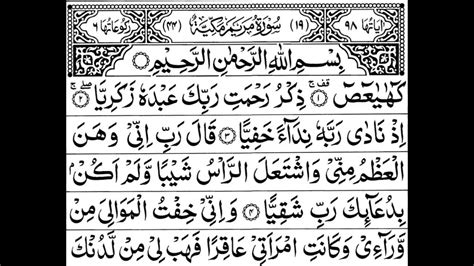 اٰیَاتُهَا ۹۸ (۱۹) سُوْرَةُ مَرْیَمَ مَكِّیَّةٌ (۴۴) رُكُوْعَاتُهَا ۶
بِسْمِ اللّٰهِ الرَّحْمٰنِ الرَّحِیْمِ
كٓهٰیٰعٓصٓ ۚ۟ۙ ۱ ذِكْرُ رَحْمَتِ رَبِّكَ عَبْدَهٗ زَكَرِیَّا ۖۚ ۲
اِذْ نَادٰی رَبَّهٗ نِدَآءً خَفِیًّا ۳ قَالَ رَبِّ اِنِّیْ وَهَنَ
الْعَظْمُ مِنِّیْ وَاشْتَعَلَ الرَّاْسُ شَیْبًا وَّلَمْ اَكُنْۢ
بِدُعَآئِكَ رَبِّ شَقِیًّا ۴ وَاِنِّیْ خِفْتُ الْمَوَالِیَ مِنْ
وَّرَآءِیْ وَكَانَتِ امْرَاَتِیْ عَاقِرًا فَهَبْ لِیْ مِنْ لَّدُنْكَ